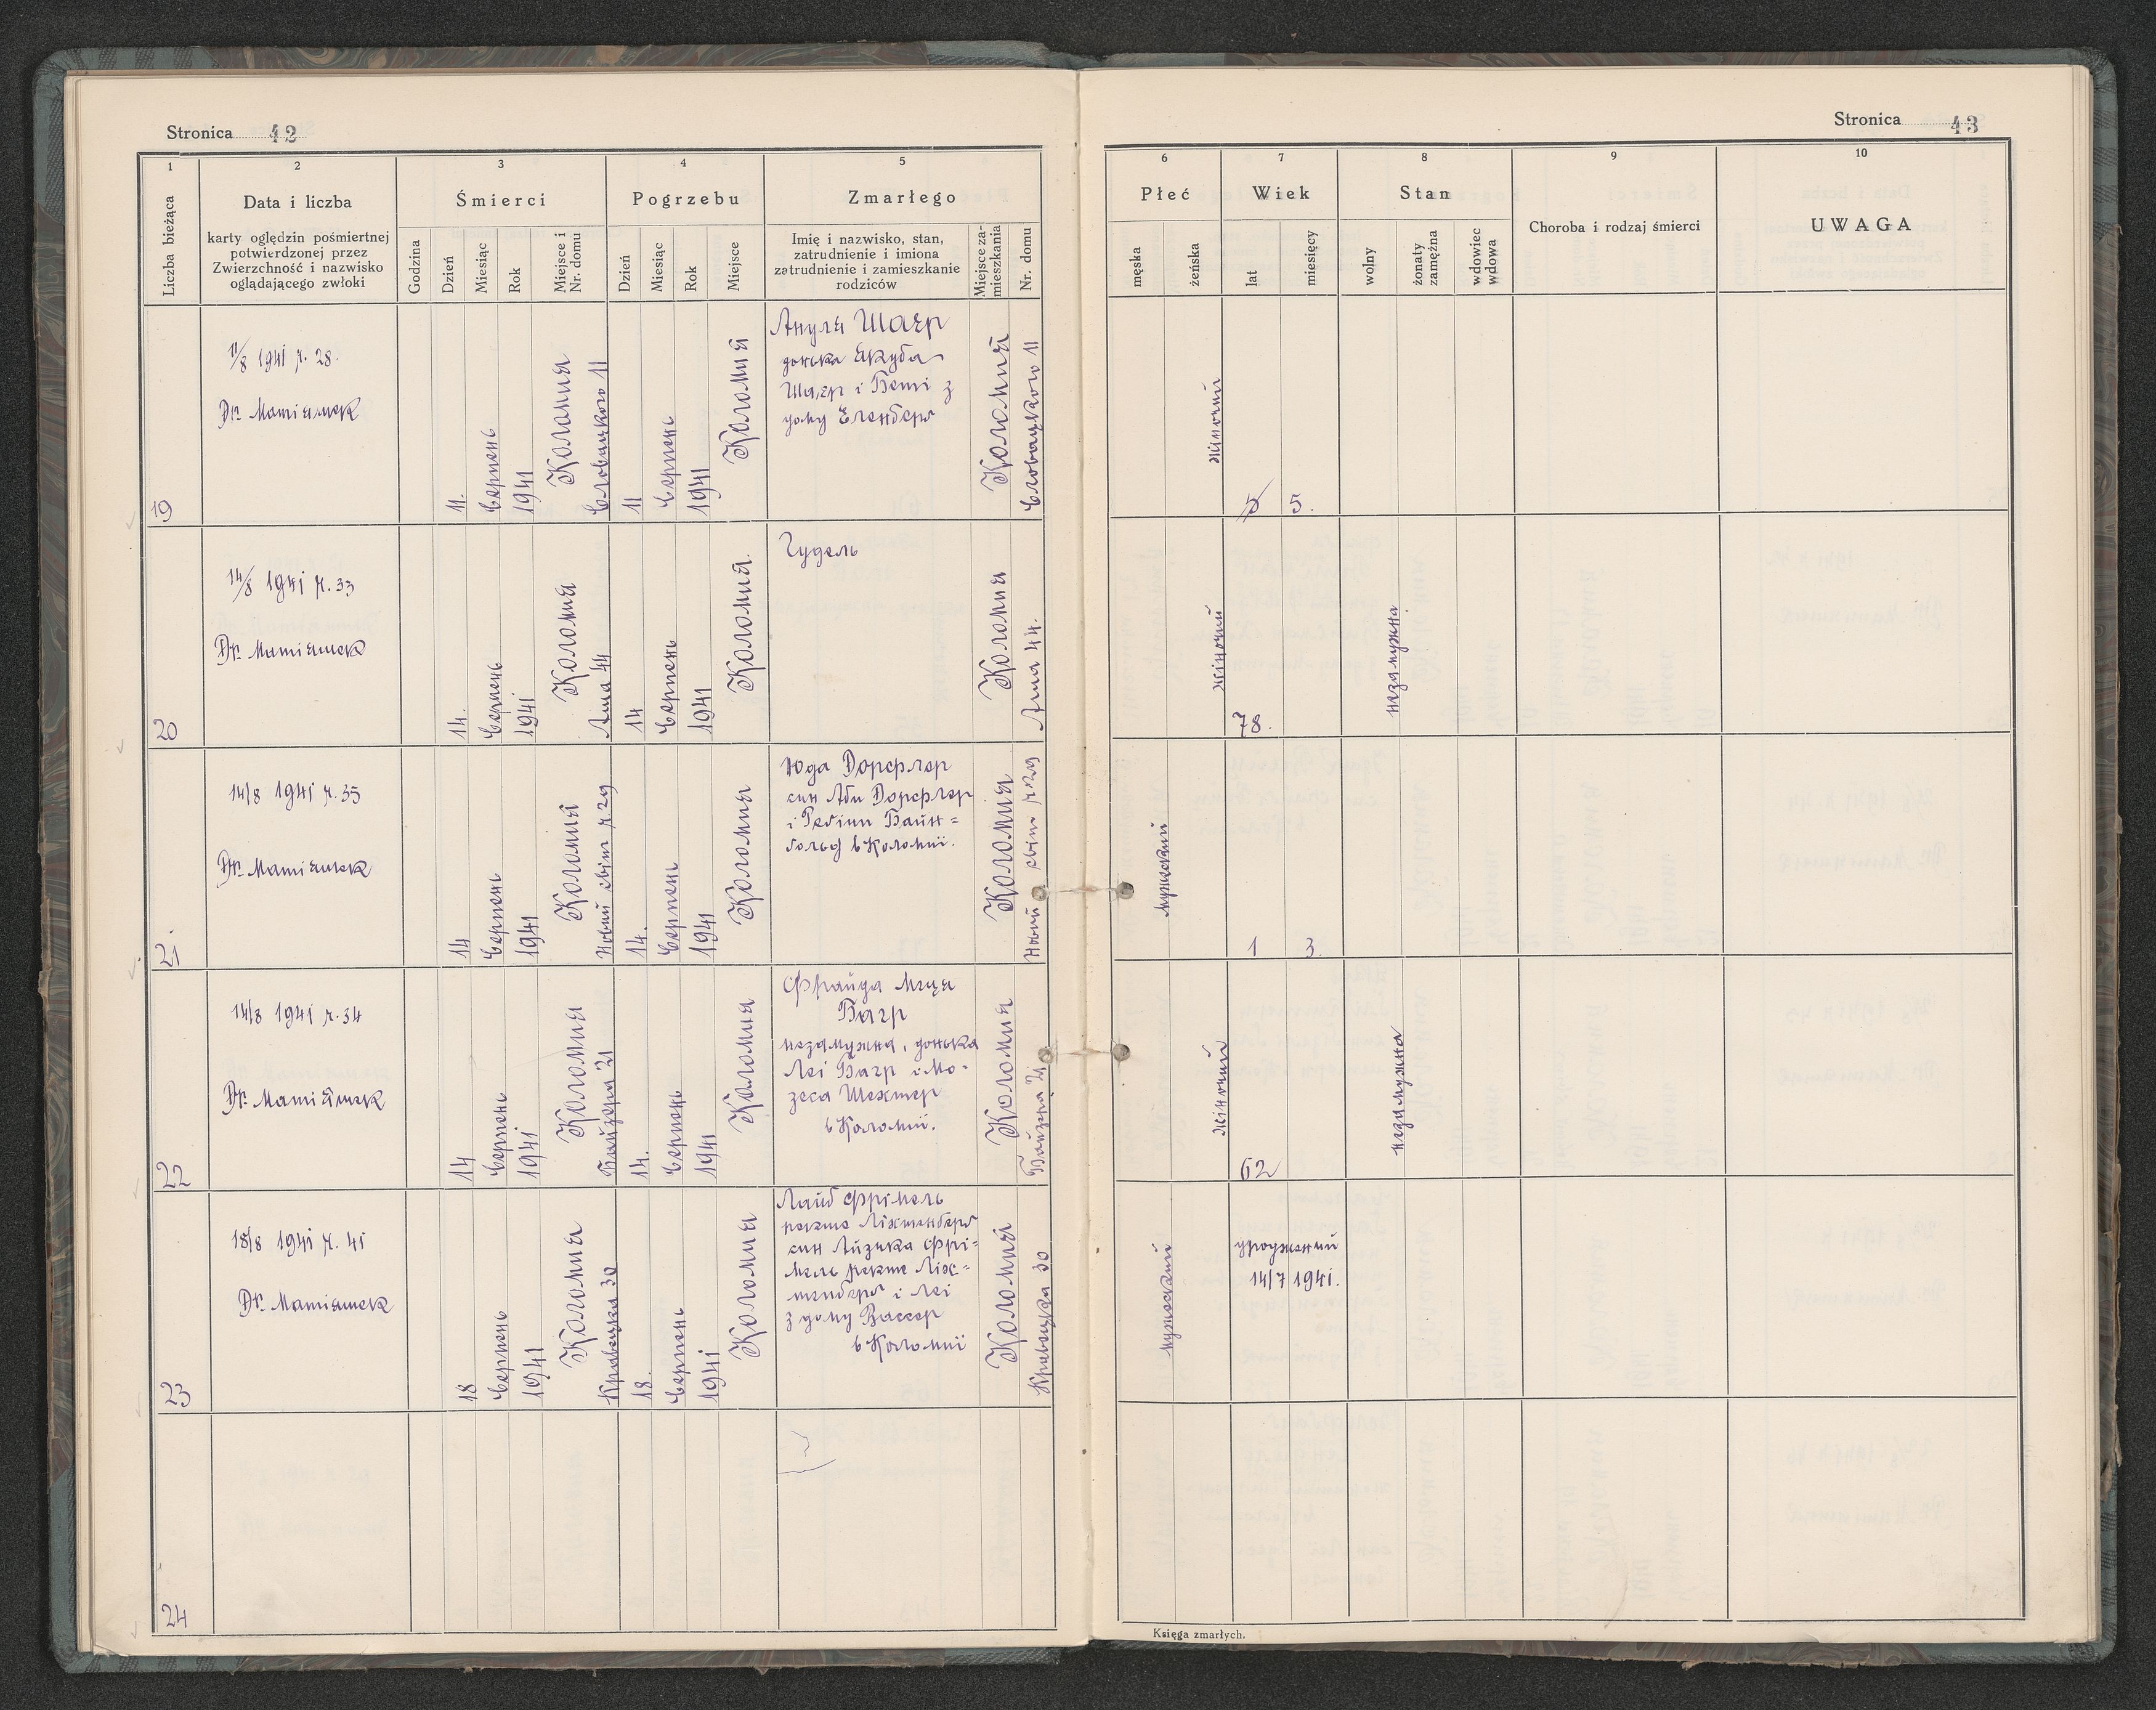 Stronica 42
1
2
3
4
5
Liczba bieżąca
Data i liczba
karty oględzin pośmiertnej
potwierdzonej przez
Zwierzchność i nazwisko
oglądającego zwłoki
Śmierci
Godzina
Dzień
Miesiąc
Rok
Miejsce i
Nr. domu
Pogrzebu
Dzień
Miesiąc
Rok
Miejsce
Zmarłego
Imię i nazwisko, stan,
zatrudnienie i imiona
zatrudnienie i zamieszkanie
rodziców
Miejsce za-
mieszkania
Nr. domu
19
11/8 1941 ч. 28.
Dr.
11.
Серпень
1941
Коломия
Словацкого 11
11
Серпень
1941
Коломиа
Шаер
донька Якуба
Шаер і Бети з
дому Еленберг
Коломия
Словацкого 11
20
14/8 1941 ч. 33
Dr.
14.
Серпень
1941
Коломия
44
14
Серпень
1941
Коломия.
Гудель
Коломия
44.
21
14/8 1941 ч. 35
Dr.
14
Серпень
1941
Коломия
Новий світ ч 29
14.
Серпень
1941
Коломия
Юда Дорфлер
син Аби Дорфлер
і Регіни Вайн=
гольд в Коломиї.
Коломия
Новий світ ч 29
22
14/8 1941 ч. 34
Dr.
14
Серпень
1941
Коломия
Байзера 21
14.
Серпень
1941
Коломия
Фрайда
Багр
незамужна, донька
Леї Багр і Мо-
зеса Шехтер
в Коломиї.
Коломия
Байзера 21
23
18/8 1941 ч. 41
Dr.
18
Серпень
1941
Коломия
Кравецка 30
18.
Серпень
1941
Коломия
Лайб Фрімель
ректе Ліхтенберг
син Айзика Фрі=
мель ректе Ліх=
тенберг і Леї
з дому Вассер
в Коломиї
Коломия
Кравецка 30
24
Stronica 43
6
7
8
9
10
Płeć
męska
żeńska
Wiek
lat
miesięcy
Stan
wolny
żonaty
zamężna
wdowiec
wdowa
Choroba i rodzaj śmierci
UWAGA
жіночий
5.
жіночий
78.
незамужна
мужеский
1
3.
жіночий
62
незамужна
мужеский
уроджений
14/7 1941.
Księga zmarłych.